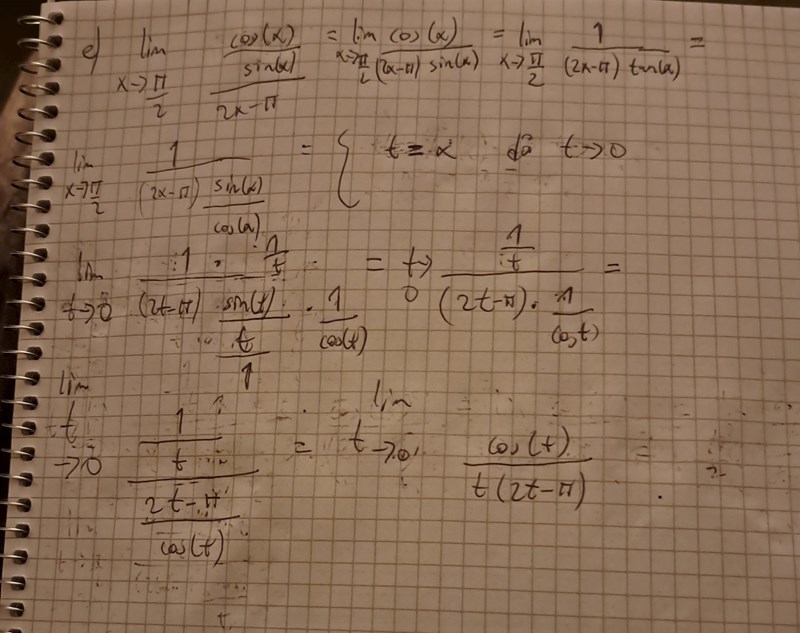 e) lim x→π/2 (cos(x)/sin(x))/(2x-π) = lim x→π/2 cos(x)/((2x-π) sin(x)) = lim x→π/2 1/((2x-π) tan(x)) =
lim x→π/2 1/((2x-π) sin(x)/cos(x)) = { t = x då t→0
lim t→0 (1 · 1/t)/((2t-π) · (sin(t)/t)/1 · 1/cos(t)) = t→0 (1/t)/((2t-π) · 1/cos(t)) =
lim t→0 (1/t)/((2t-π)/cos(t)) = lim t→0 cos(t)/(t(2t-π)) =